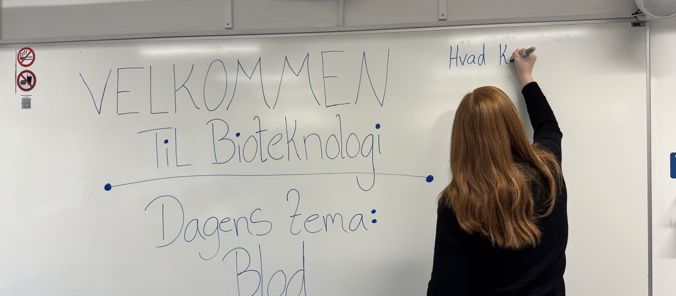 VELKOMMEN
Til Bioteknologi
Dagens Tema:
Blod
Hvad K